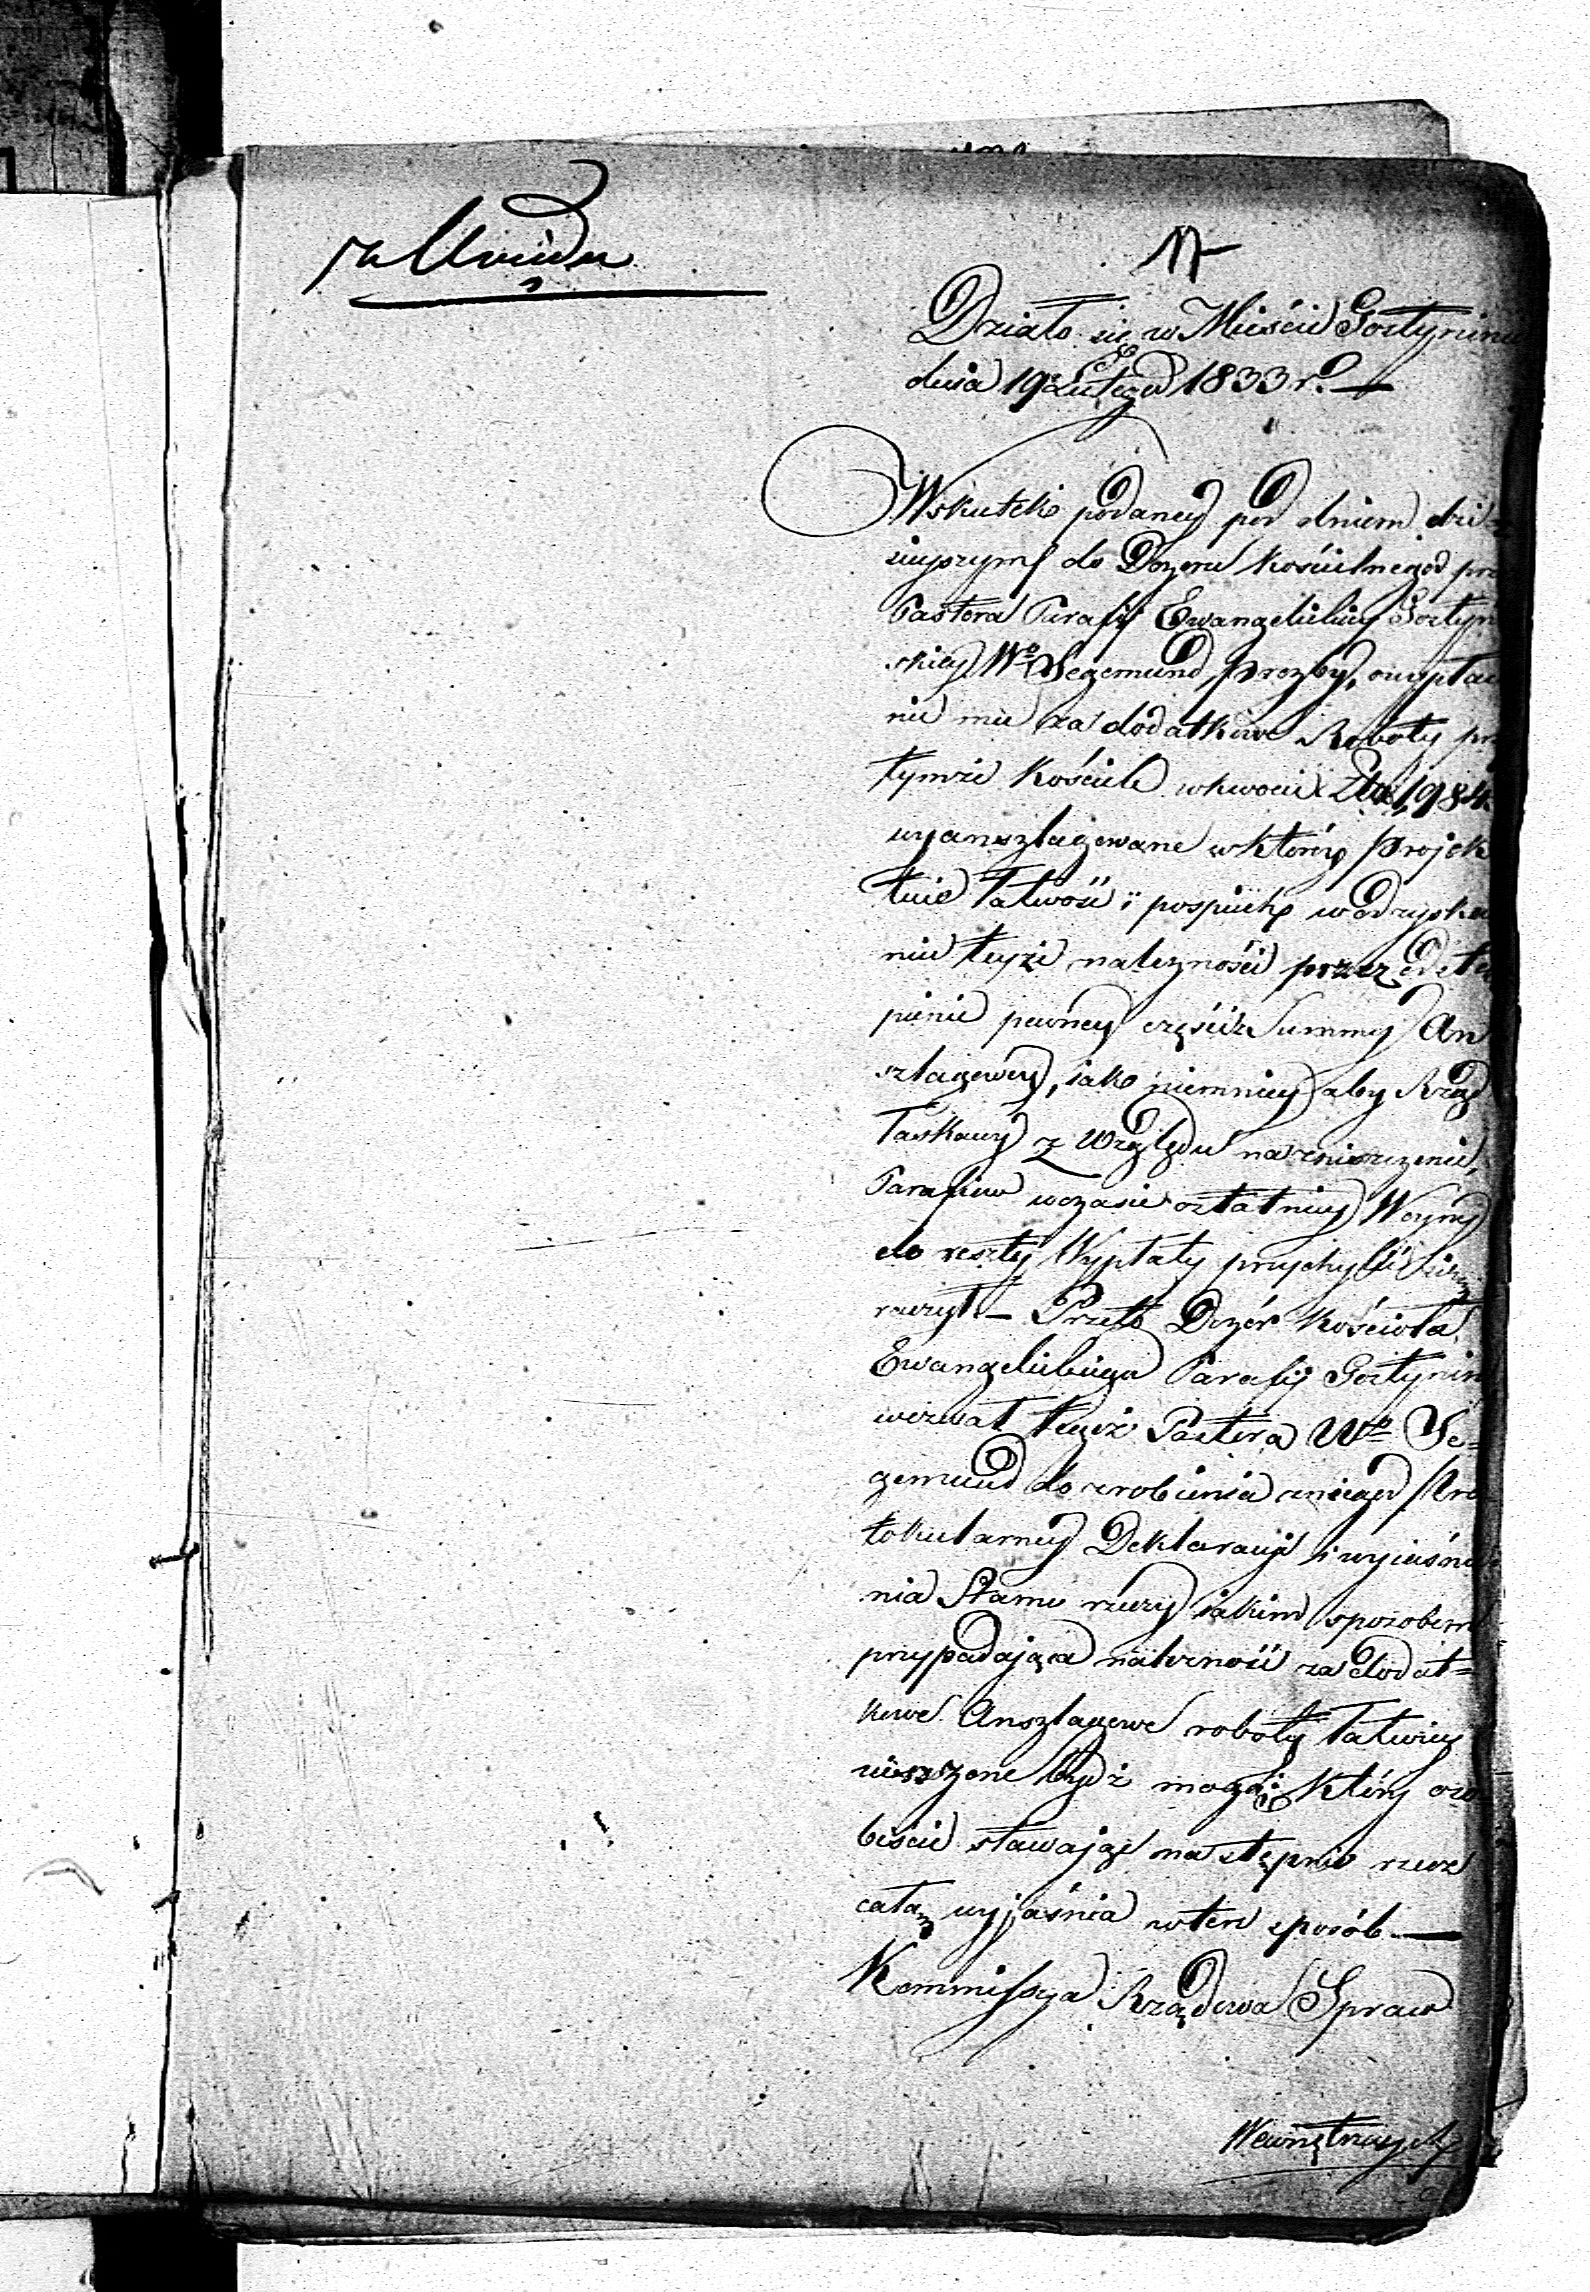 Działo się w Mieście Gostyninie
dnia 19º Lutego 1833 rº. —
Wskutek podaney pod dniem dzi-
sieyszym do Dozoru kościelnego prz
Pastora Parafij Ewangelickiey Gostyn
skiey Wº Segemund, prozby, o wypłace
nie mu za dodatkowe Roboty prz
tymże kościele w kwocie Złp. 1984
wyanszlagowane w któréy projek
tuie łatwość i pospiech w odzyska
niu teyże należności przez odstą
pienie pewney części z Summy An
szlagowey, iako niemniey aby Rząd
łaskawy z względu na zniszczenie,
Parafian w czasie ostatniey Woyny
do reszty Wypłaty przychylić się
raczył — Przeto Dozór kościoła
Ewangelickiego Parafij Gostynin
wezwał tegoż Pastora Wº Se-
gemund do zrobienia z niego Pro
tokularney Deklaracyi i wyiaśnie
nia Stanu rzeczy iakim sposobem
przypadająca należność za dodat=
kowe Anszlagowe roboty łatwiey
uiszczone bydź mogą; który oso
biście stawając następnie rzecz
całą wyjaśnia w ten sposób —
Kommissya Rządowa Spraw
Wewnętrznych